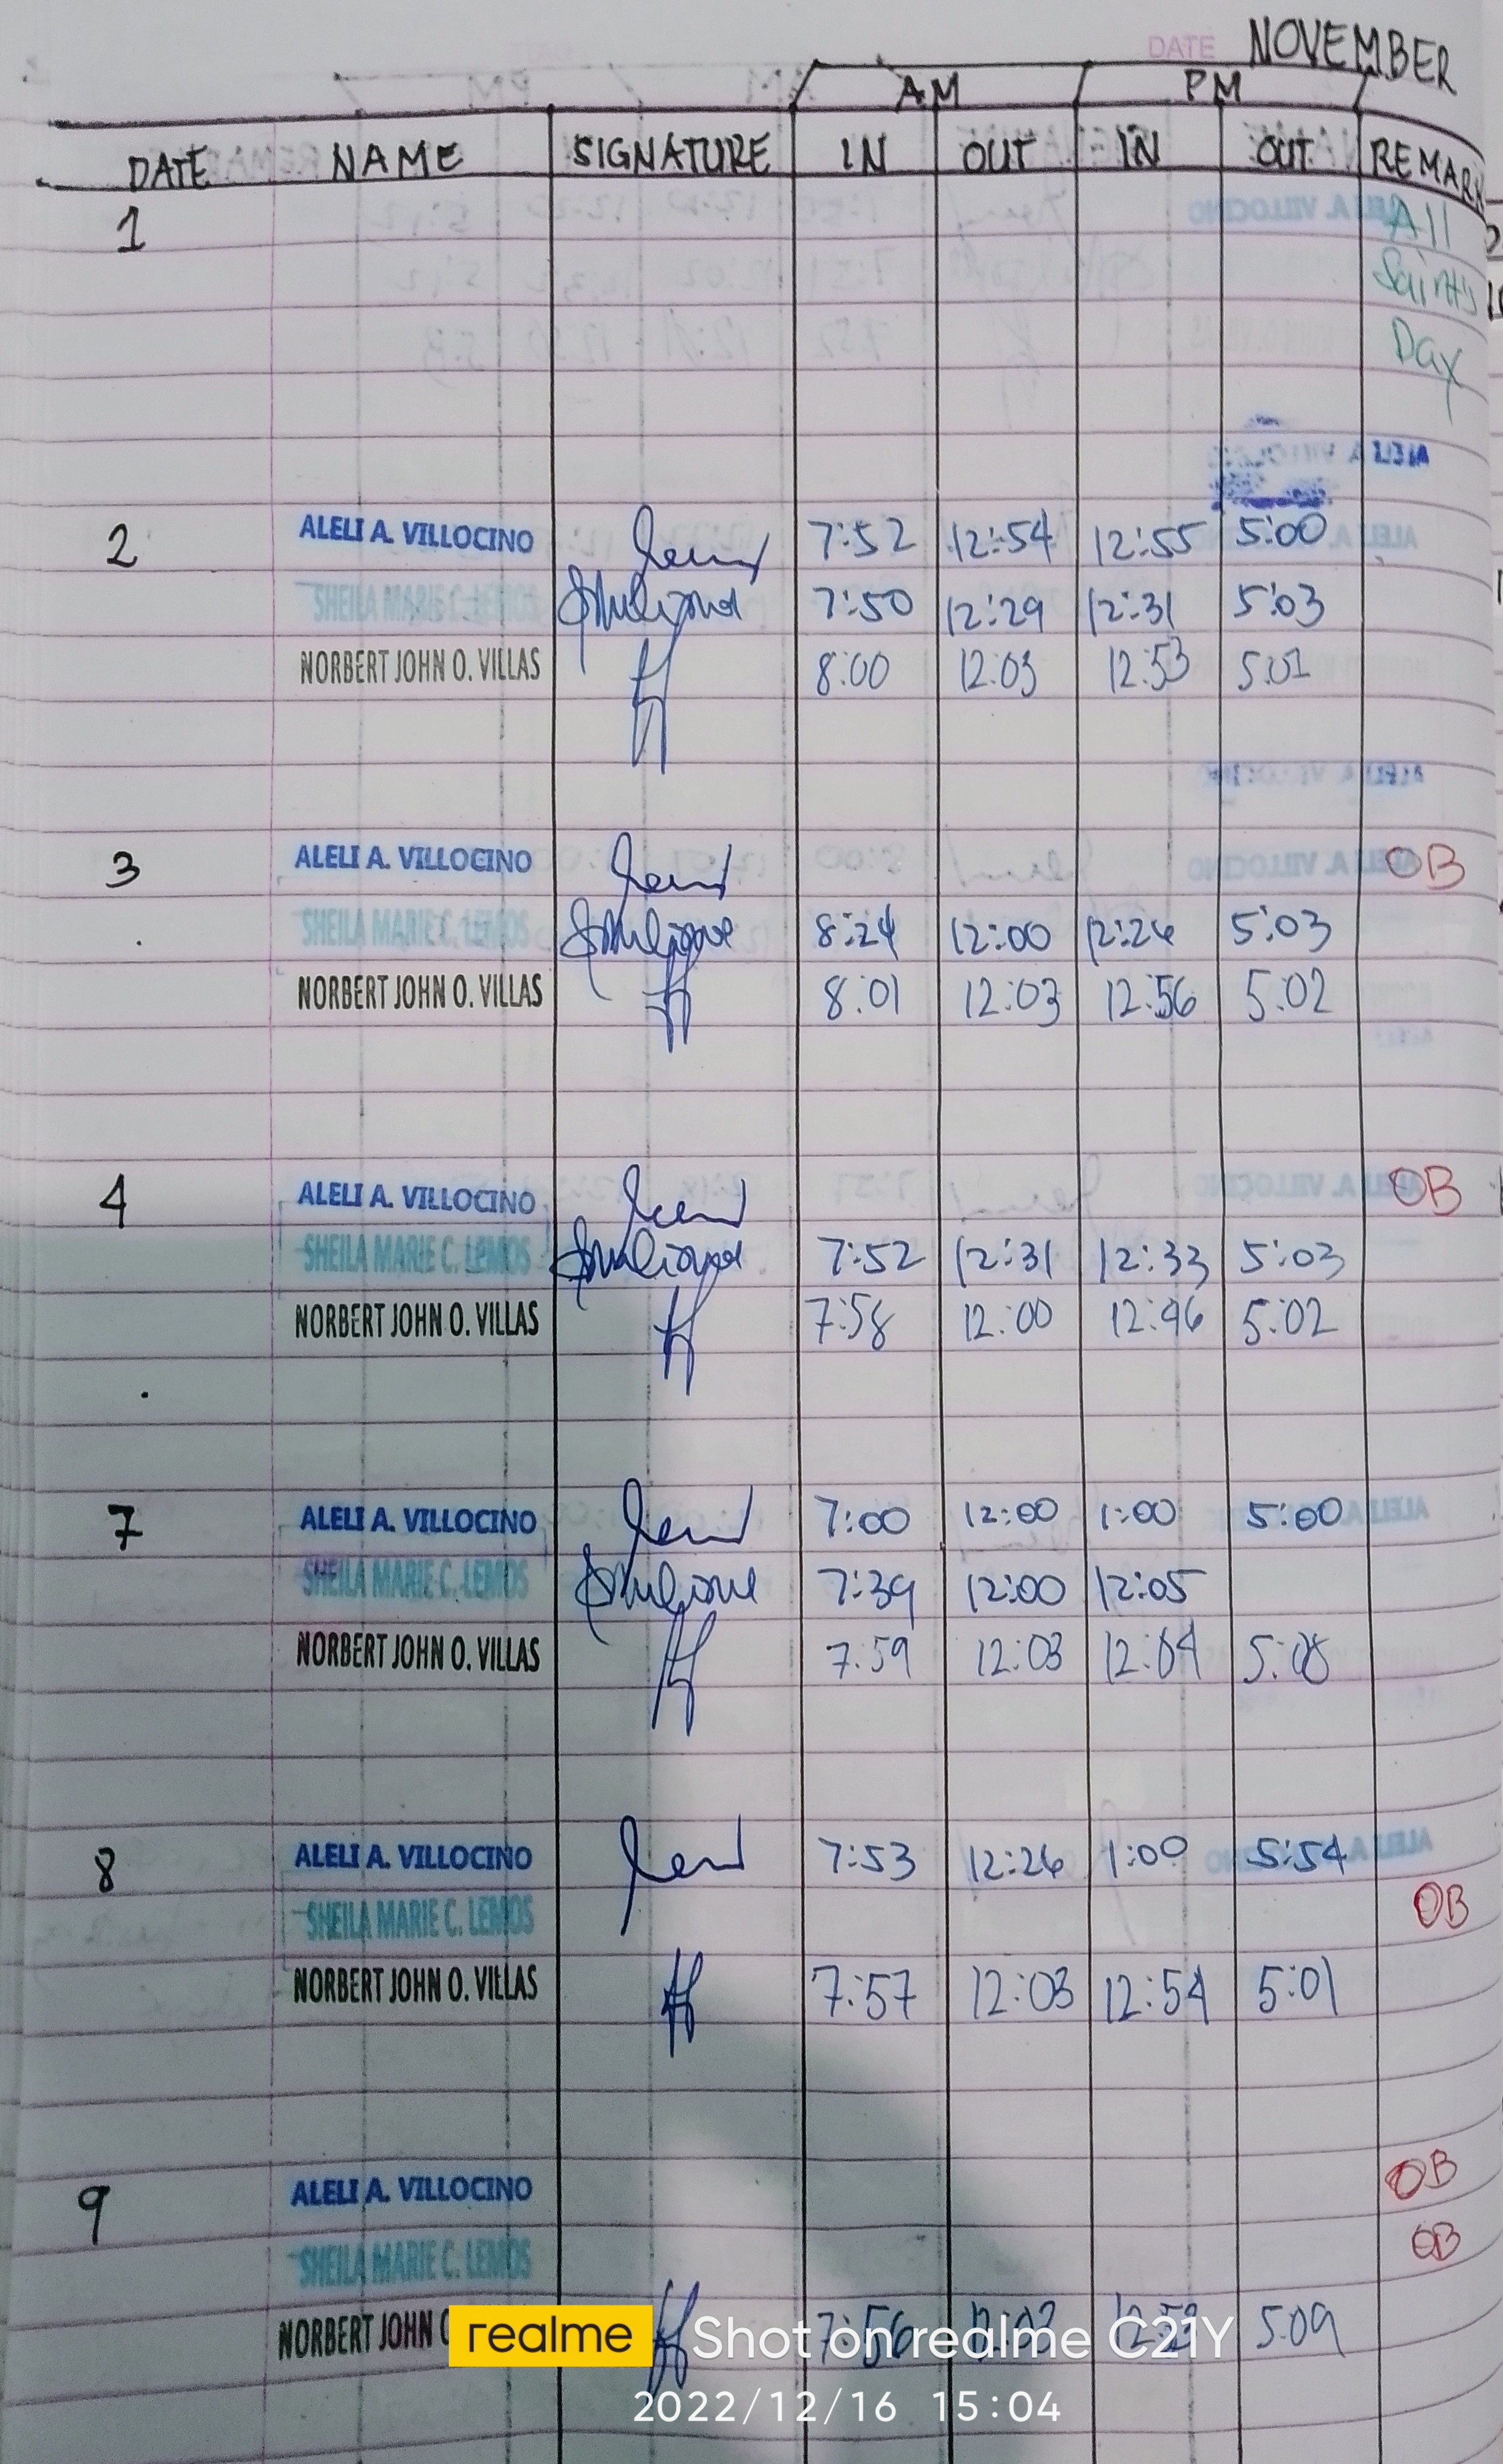 DATE NOVEMBER
AM PM
DATE NAME SIGNATURE IN OUT IN OUT REMARK
1 All
Saint's
Day
2 ALELI A. VILLOCINO 7:52 12:54 12:55 5:00
SHEILA MARIE C. LEMOS 7:50 12:29 12:31 5:03
NORBERT JOHN O. VILLAS 8:00 12:03 12:53 5:01
3 ALELI A. VILLOCINO OB
SHEILA MARIE C. LEMOS 8:24 12:00 12:26 5:03
NORBERT JOHN O. VILLAS 8:01 12:03 12:56 5:02
4 ALELI A. VILLOCINO OB
SHEILA MARIE C. LEMOS 7:52 12:31 12:33 5:03
NORBERT JOHN O. VILLAS 7:58 12:00 12:46 5:02
7 ALELI A. VILLOCINO 7:00 12:00 1:00 5:00
SHEILA MARIE C. LEMOS 7:39 12:00 12:05
NORBERT JOHN O. VILLAS 7:59 12:03 12:04
8 ALELI A. VILLOCINO 7:53 12:26 1:00 5:54
SHEILA MARIE C. LEMOS OB
NORBERT JOHN O. VILLAS 7:57 12:03 12:54 5:01
9 ALELI A. VILLOCINO OB
SHEILA MARIE C. LEMOS OB
NORBERT JOHN 7:56 12:03 12:53 5:09
realme Shot on realme C21Y
2022/12/16 15:04